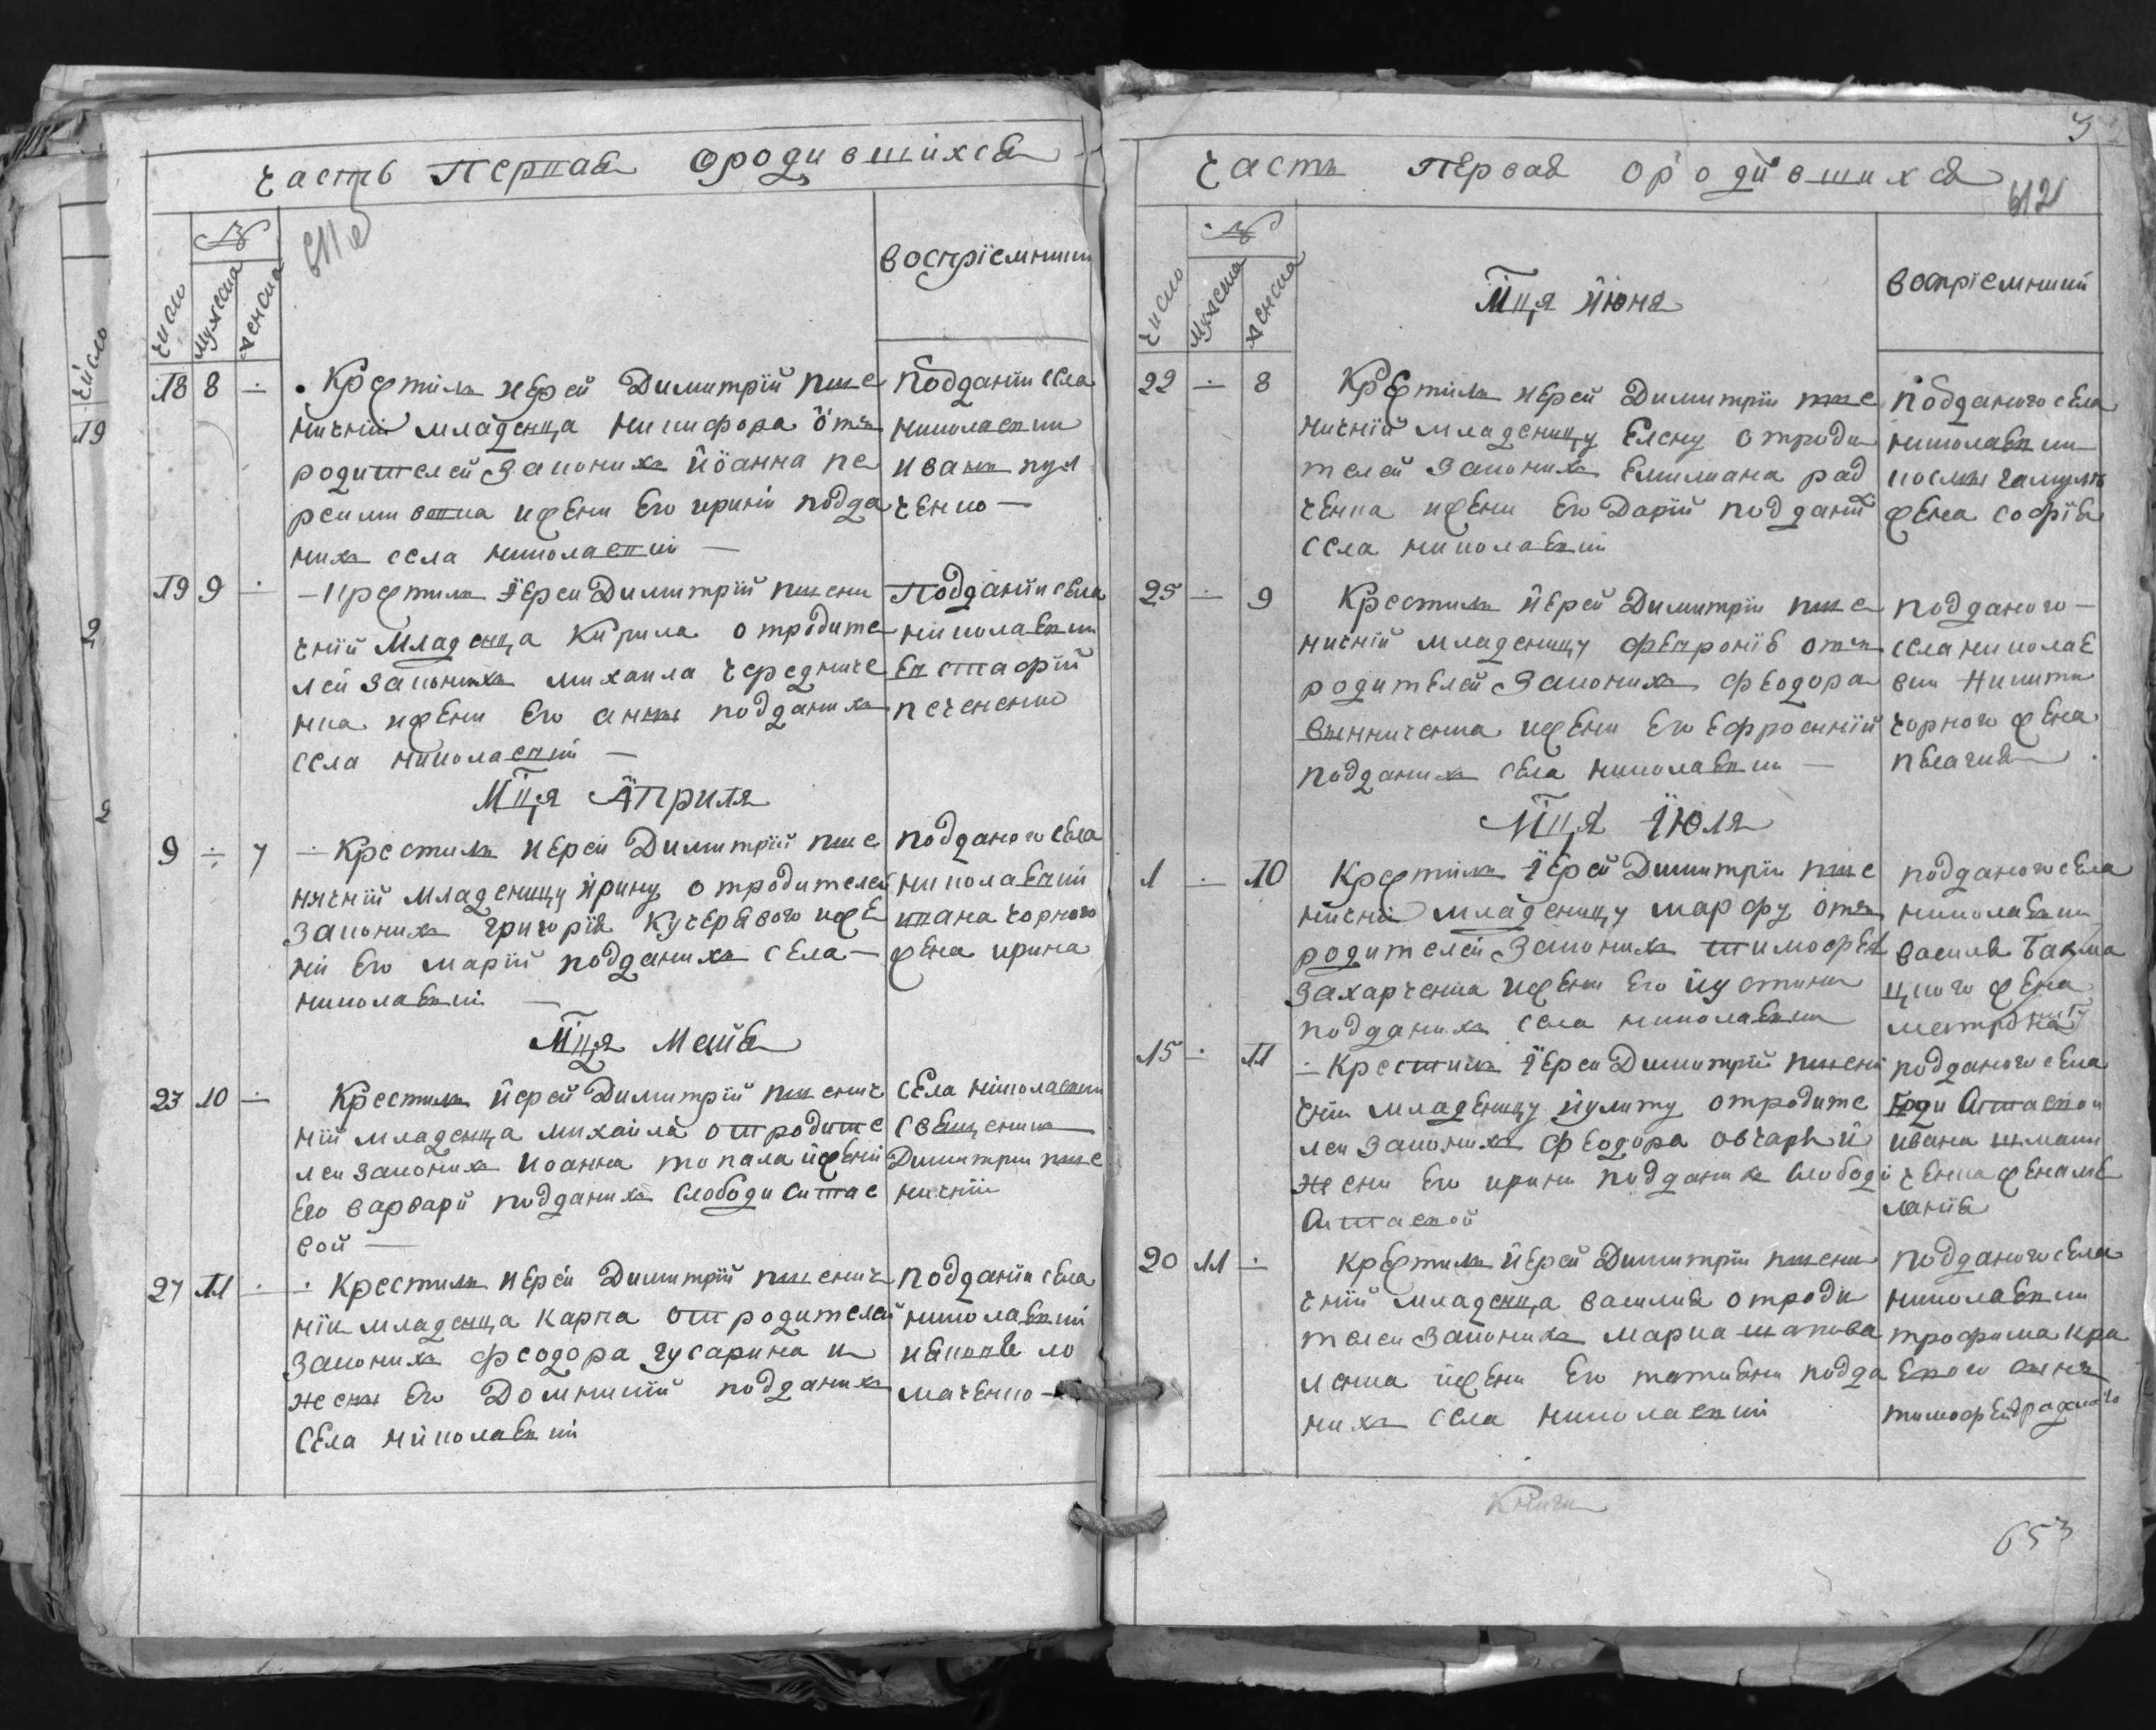 Часть Первая ородившихся
№
число
мужеска
женска
воспріемники
18 8 Крестилъ иерей Димитрій пше
ничній младенца никифора отъ
родителей законихъ иоанна пе
и жени его ирини подда
нихъ села николаевки
Поддани села
николаевки
иванъ
ченко
19 9 Крестилъ иерей Димитрій пшени
чній младенца Кирила от родите
лей законихъ михаила череднич
нка и жени его анны подданихъ
села николаевки
Поддани села
николаевки
евстафій
печененко
Мца Априля
9 7 Крестилъ иерей Димитрій пше
ничній младеницу ирину от родителей
законихъ григорія Кучерявого и же
ни его маріи подданихъ села
николаевки
подданого села
николаевки
ивана чорного
жена ирина
Мца Маия
23 10 Крестилъ иерей Димитрій пшенич
ній младенца михаила от родите
лей законихъ иоанна топала и жени
его варвари подданихъ слободи
вой
села николаевки
священикъ
Димитрій пше
ничній
27 11 Крестилъ иерей Димитрій пшенич
ній младенца карпа от родителей
законихъ феодора гусарика и
жены его Домникіи подданихъ
села николаевки
поддани села
николаевки
маченко
Часть Первая ородившихся
612
№
число
мужеска
женска
Мца июня
воспріемники
22 8 Крестилъ иерей Димитрій пше
ничній младеницу Елену от роди
телей законихъ Емилиана рад
ченка и жени его Даріи поддани
села николаевки
подданого села
николаевки
жена софія
25 9 Крестилъ иерей Димитрій пше
ничній младеницу февронію отъ
родителей законихъ феодора
винниченка и жени его Ефросинніи
подданихъ села николаевки
подданого
села николае
вки никити
чорного жена
пелагия
Мца Июля
1 10 Крестилъ иерей Димитрій пше
ничній младеницу марфу отъ
родителей законихъ тимофея
захарченка и жени его иустини
подданихъ села николаевки
подданого села
николаевки
василя
цкого жена
матрона
15 11 Крестилъ иерей Димитрій пшени
чній младеницу иулиту от родите
лей законихъ феодора овчаря и
жени его ирини подданихъ слободи
подданого села
ивана шмати
ченка жена ме
ланія
20 11 Крестилъ иерей Димитрій пшени
чній младенца василия от роди
телей законихъ марка шапова
ленка и жени его татияни подда
нихъ села николаевки
подданого села
николаевки
трофима кра
вского синъ
тимофей
653